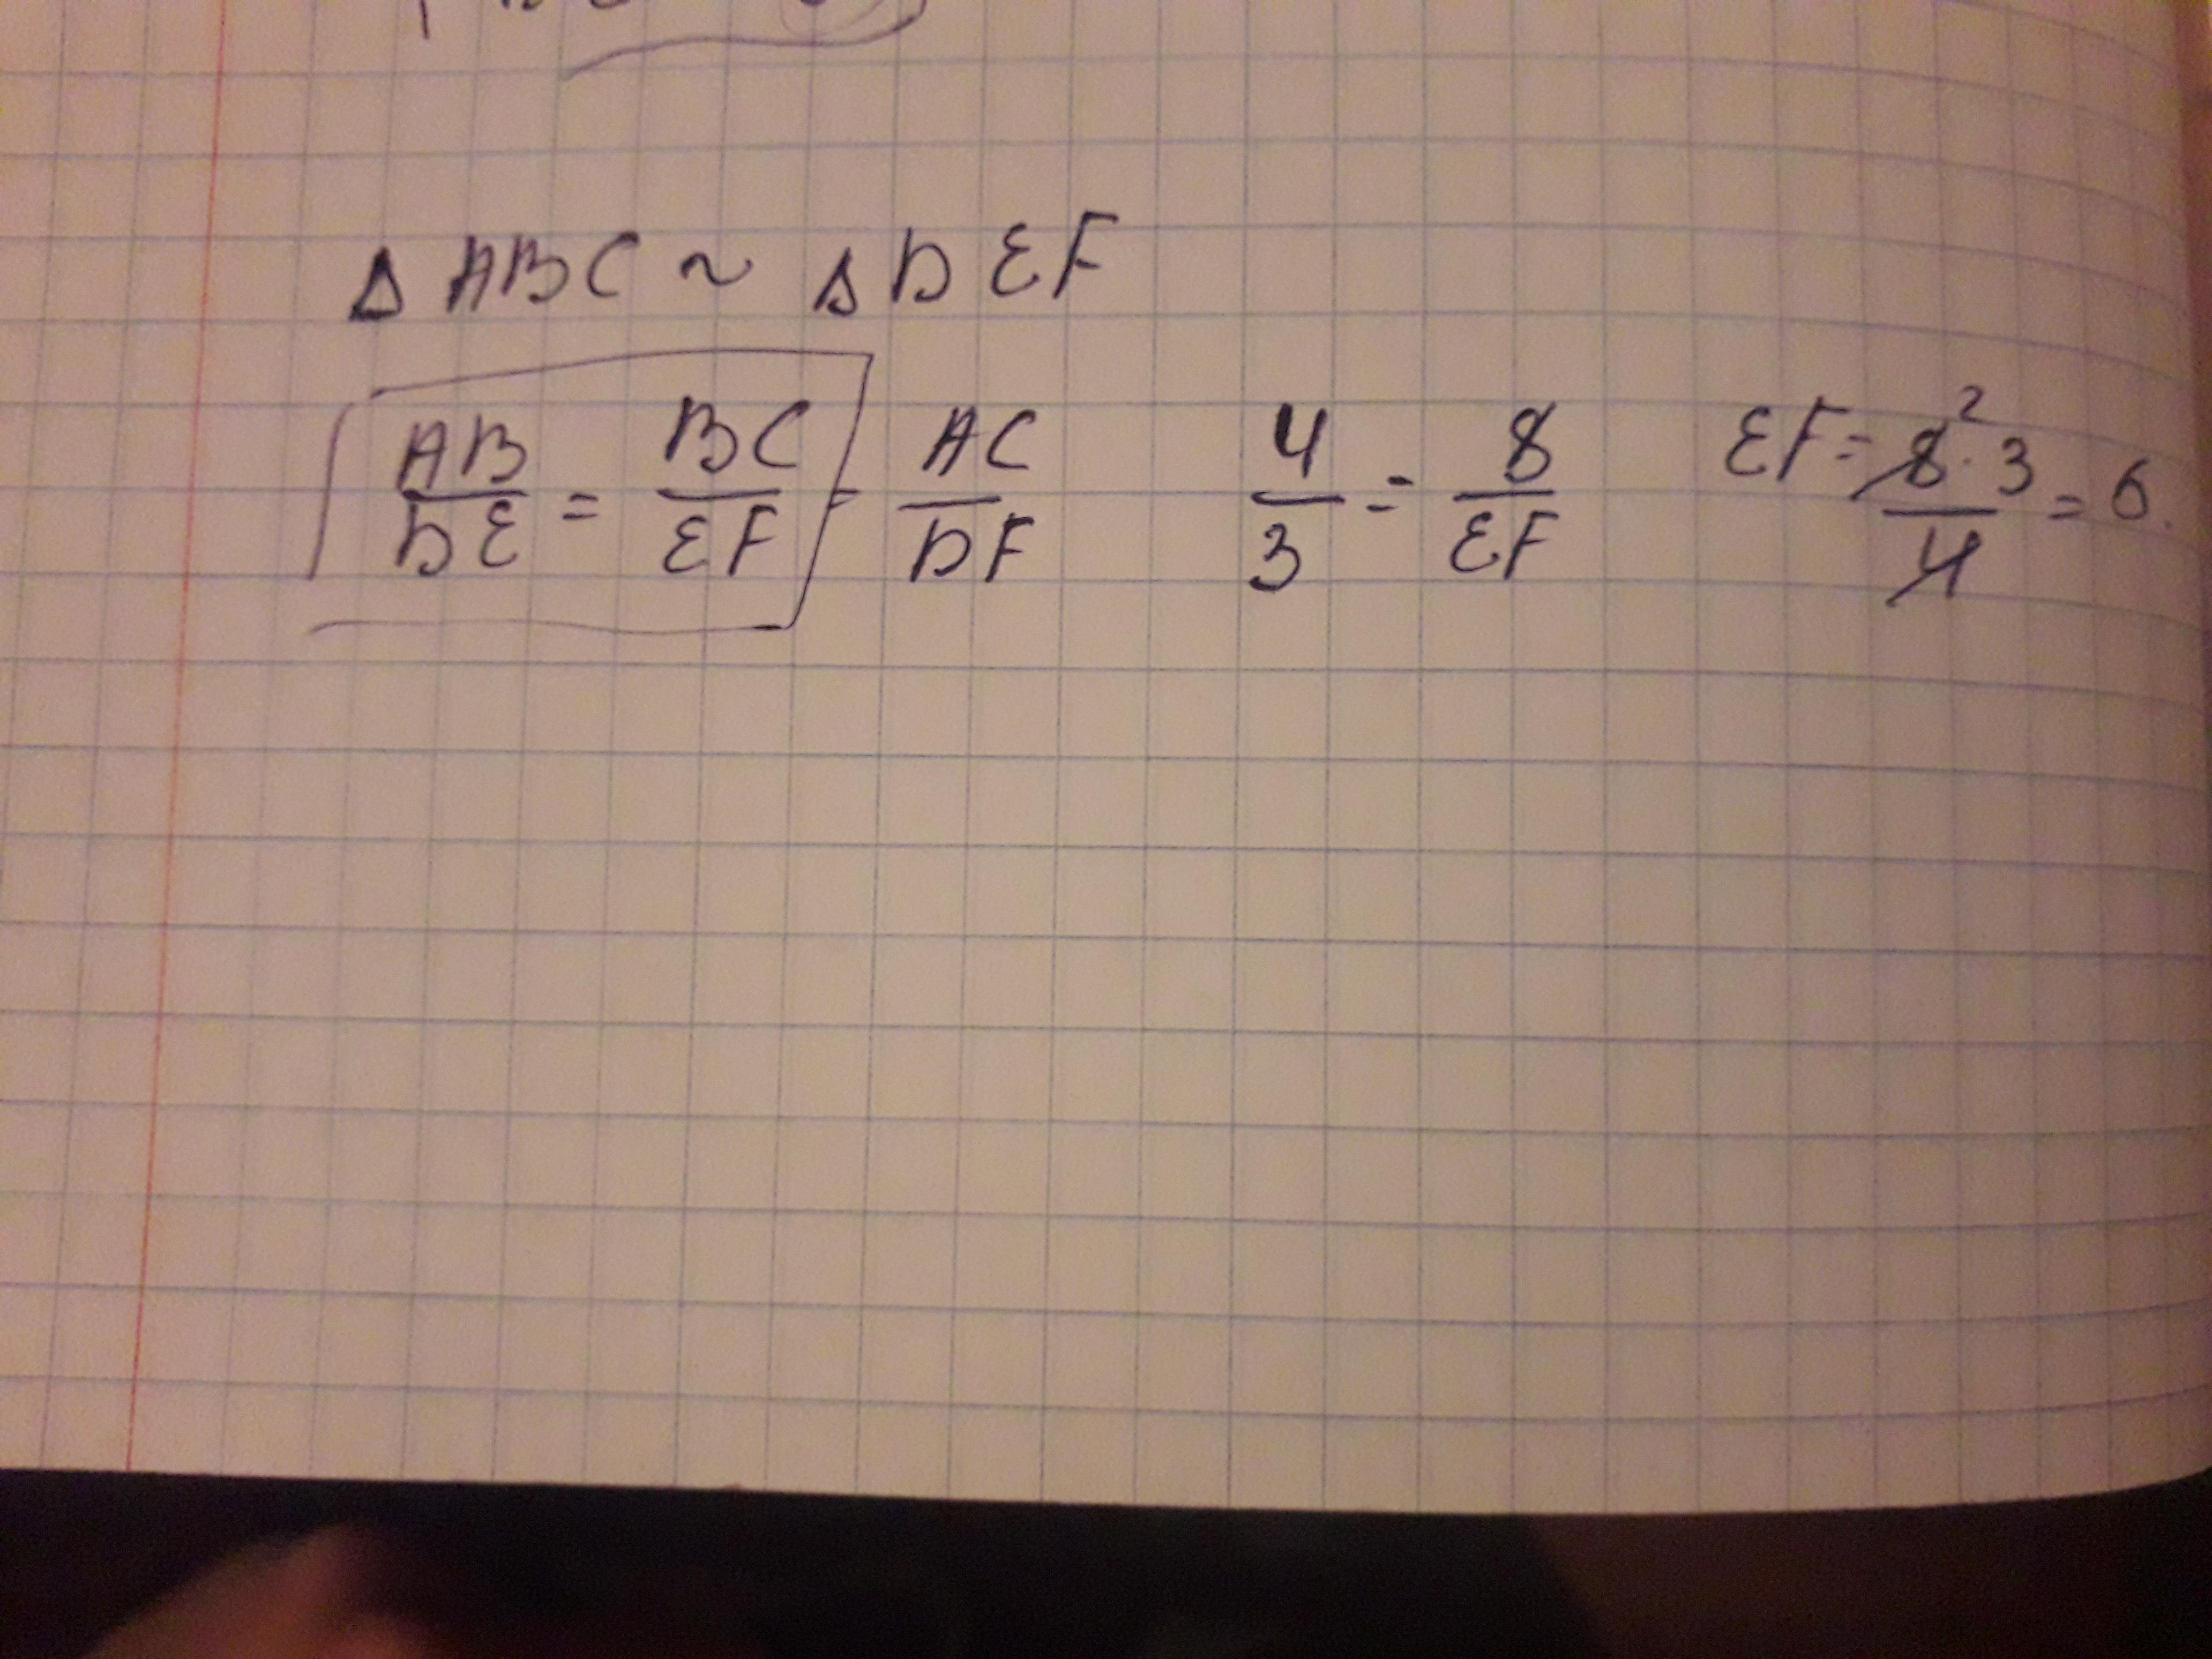 Δ ABC ~ Δ DEF
AB/DE = BC/EF = AC/DF   4/3 = 8/EF   EF = 8² · 3/4 = 6.